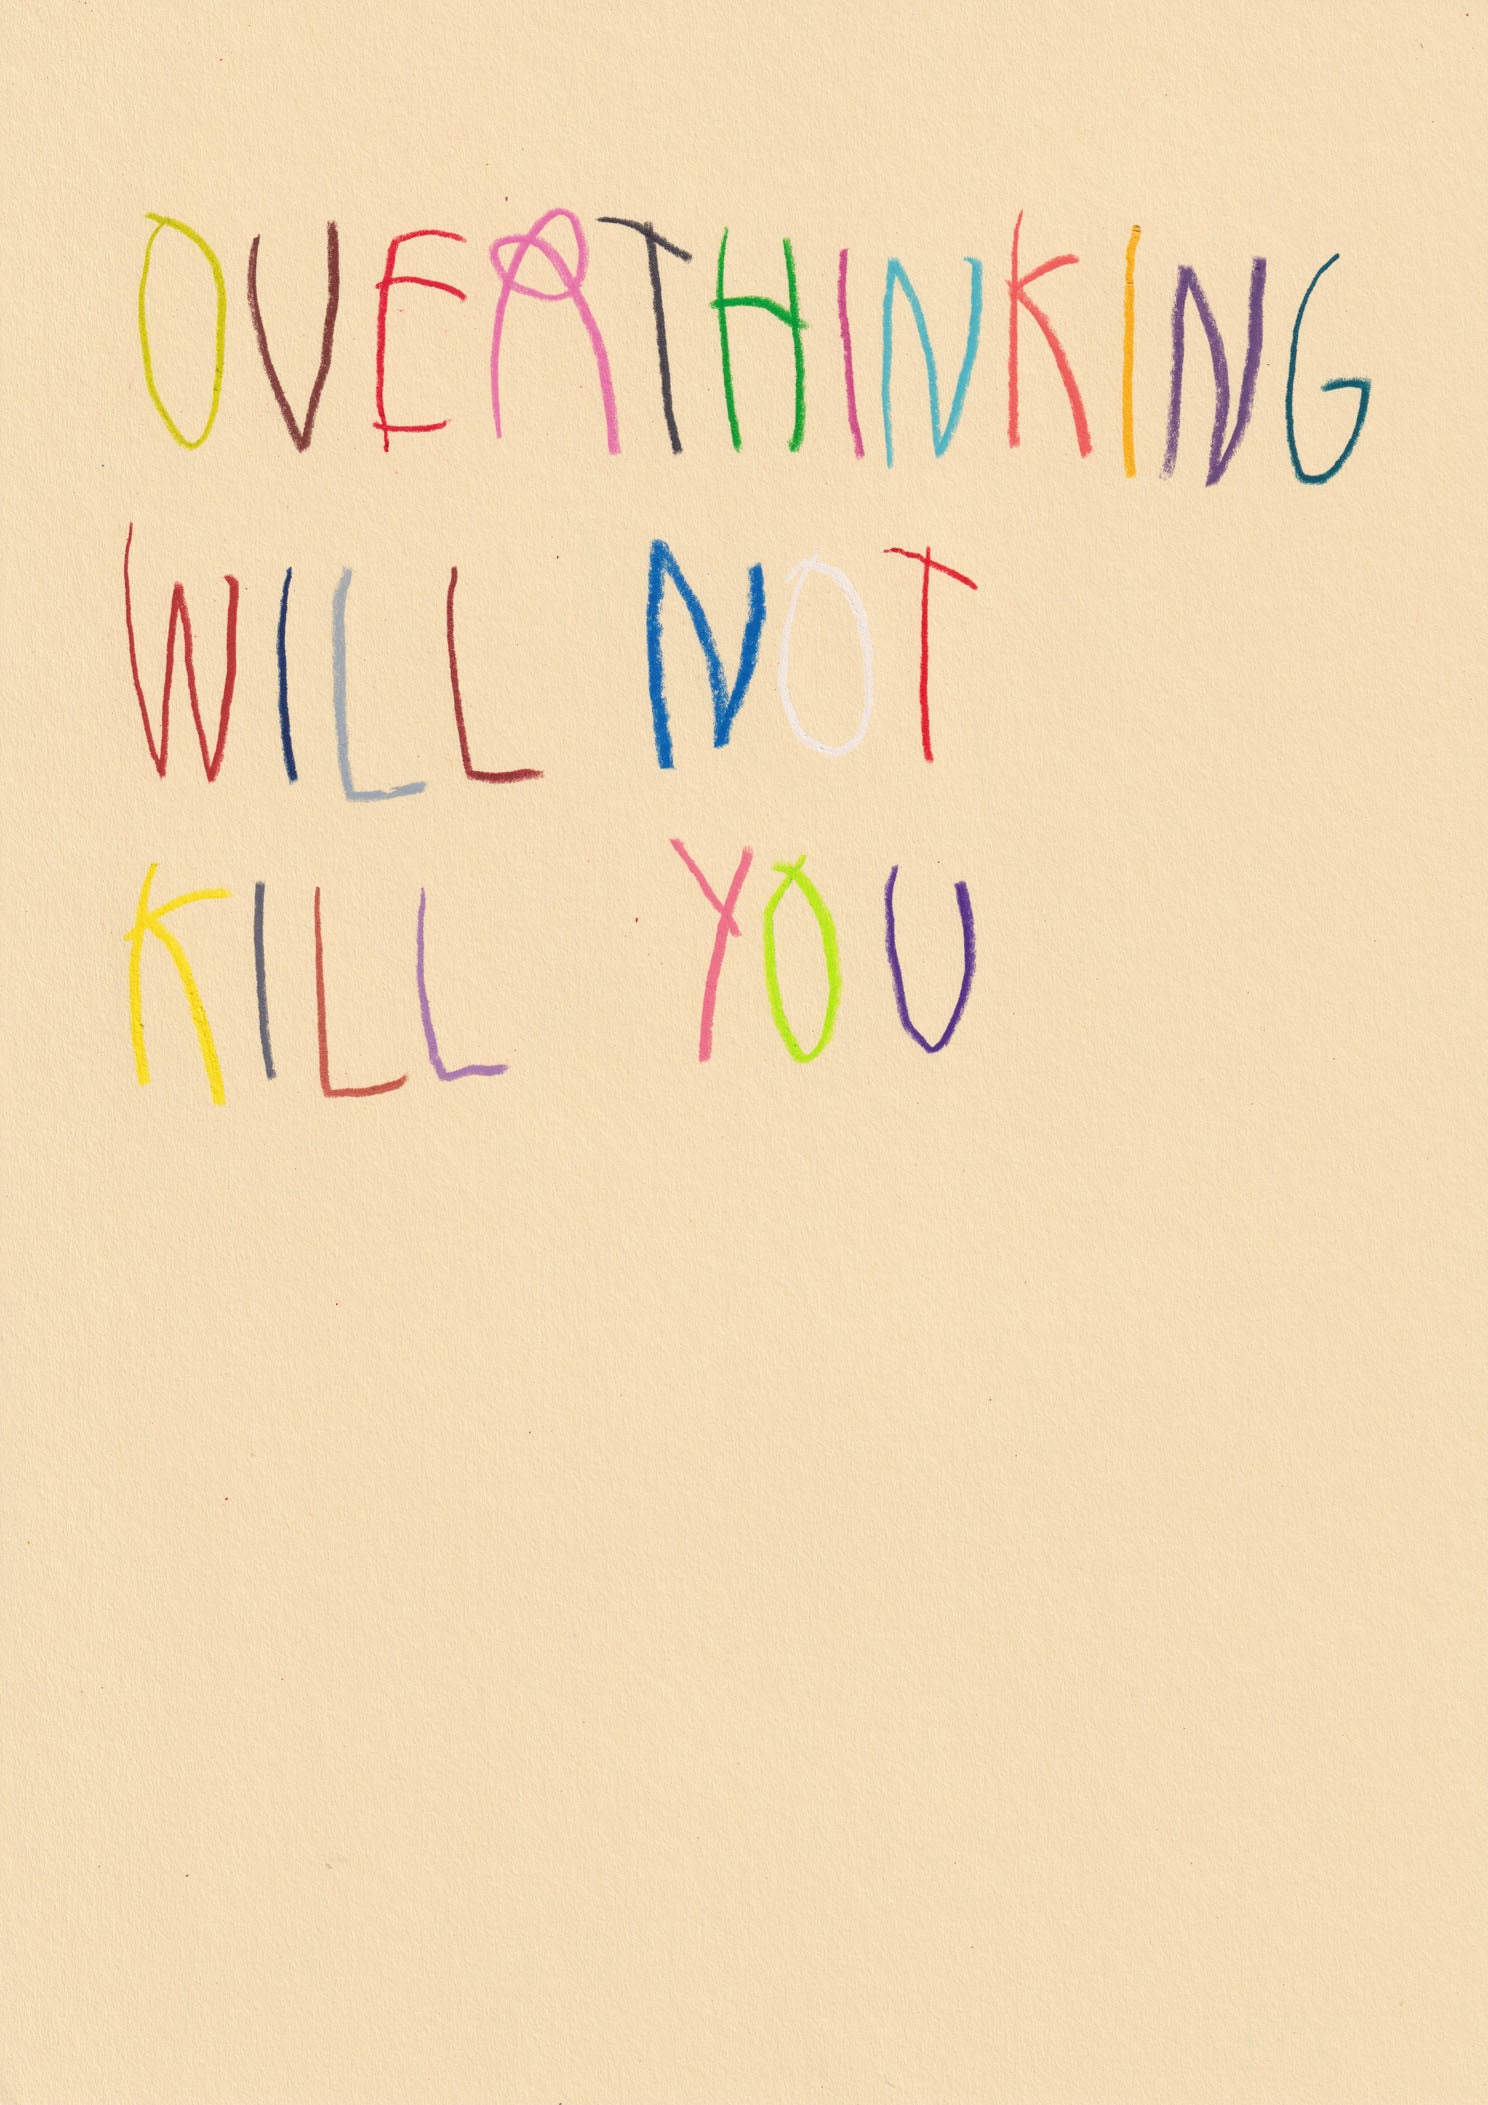 OVERTHINKING
WILL NOT
KILL YOU